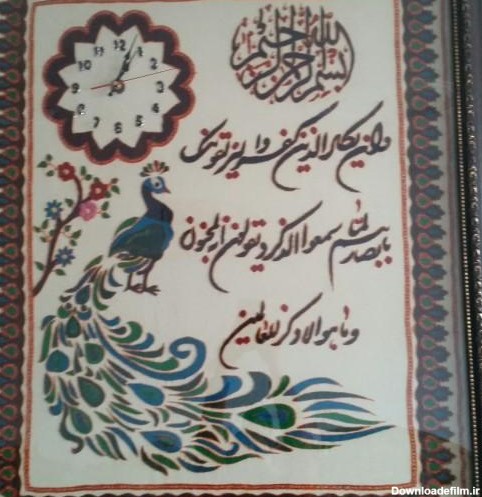 بسم الله الرحمن الرحیم
12 1 2 3 4 5 6 7 8 9 10 11
وان یکاد الذین کفروا لیزلقونک
بابصارهم لما سمعوا الذکر و یقولون انه لمجنون
و ما هو الا ذکر للعالمین
Downloadefilm.ir